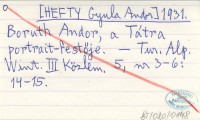 [HEFTY Gyula Andor] 1931.
Boruth Andor, a Tátra
portrait-festője. — Tur. Alp.
Wint. III Közlem. 5, nr 3-6:
14-15.